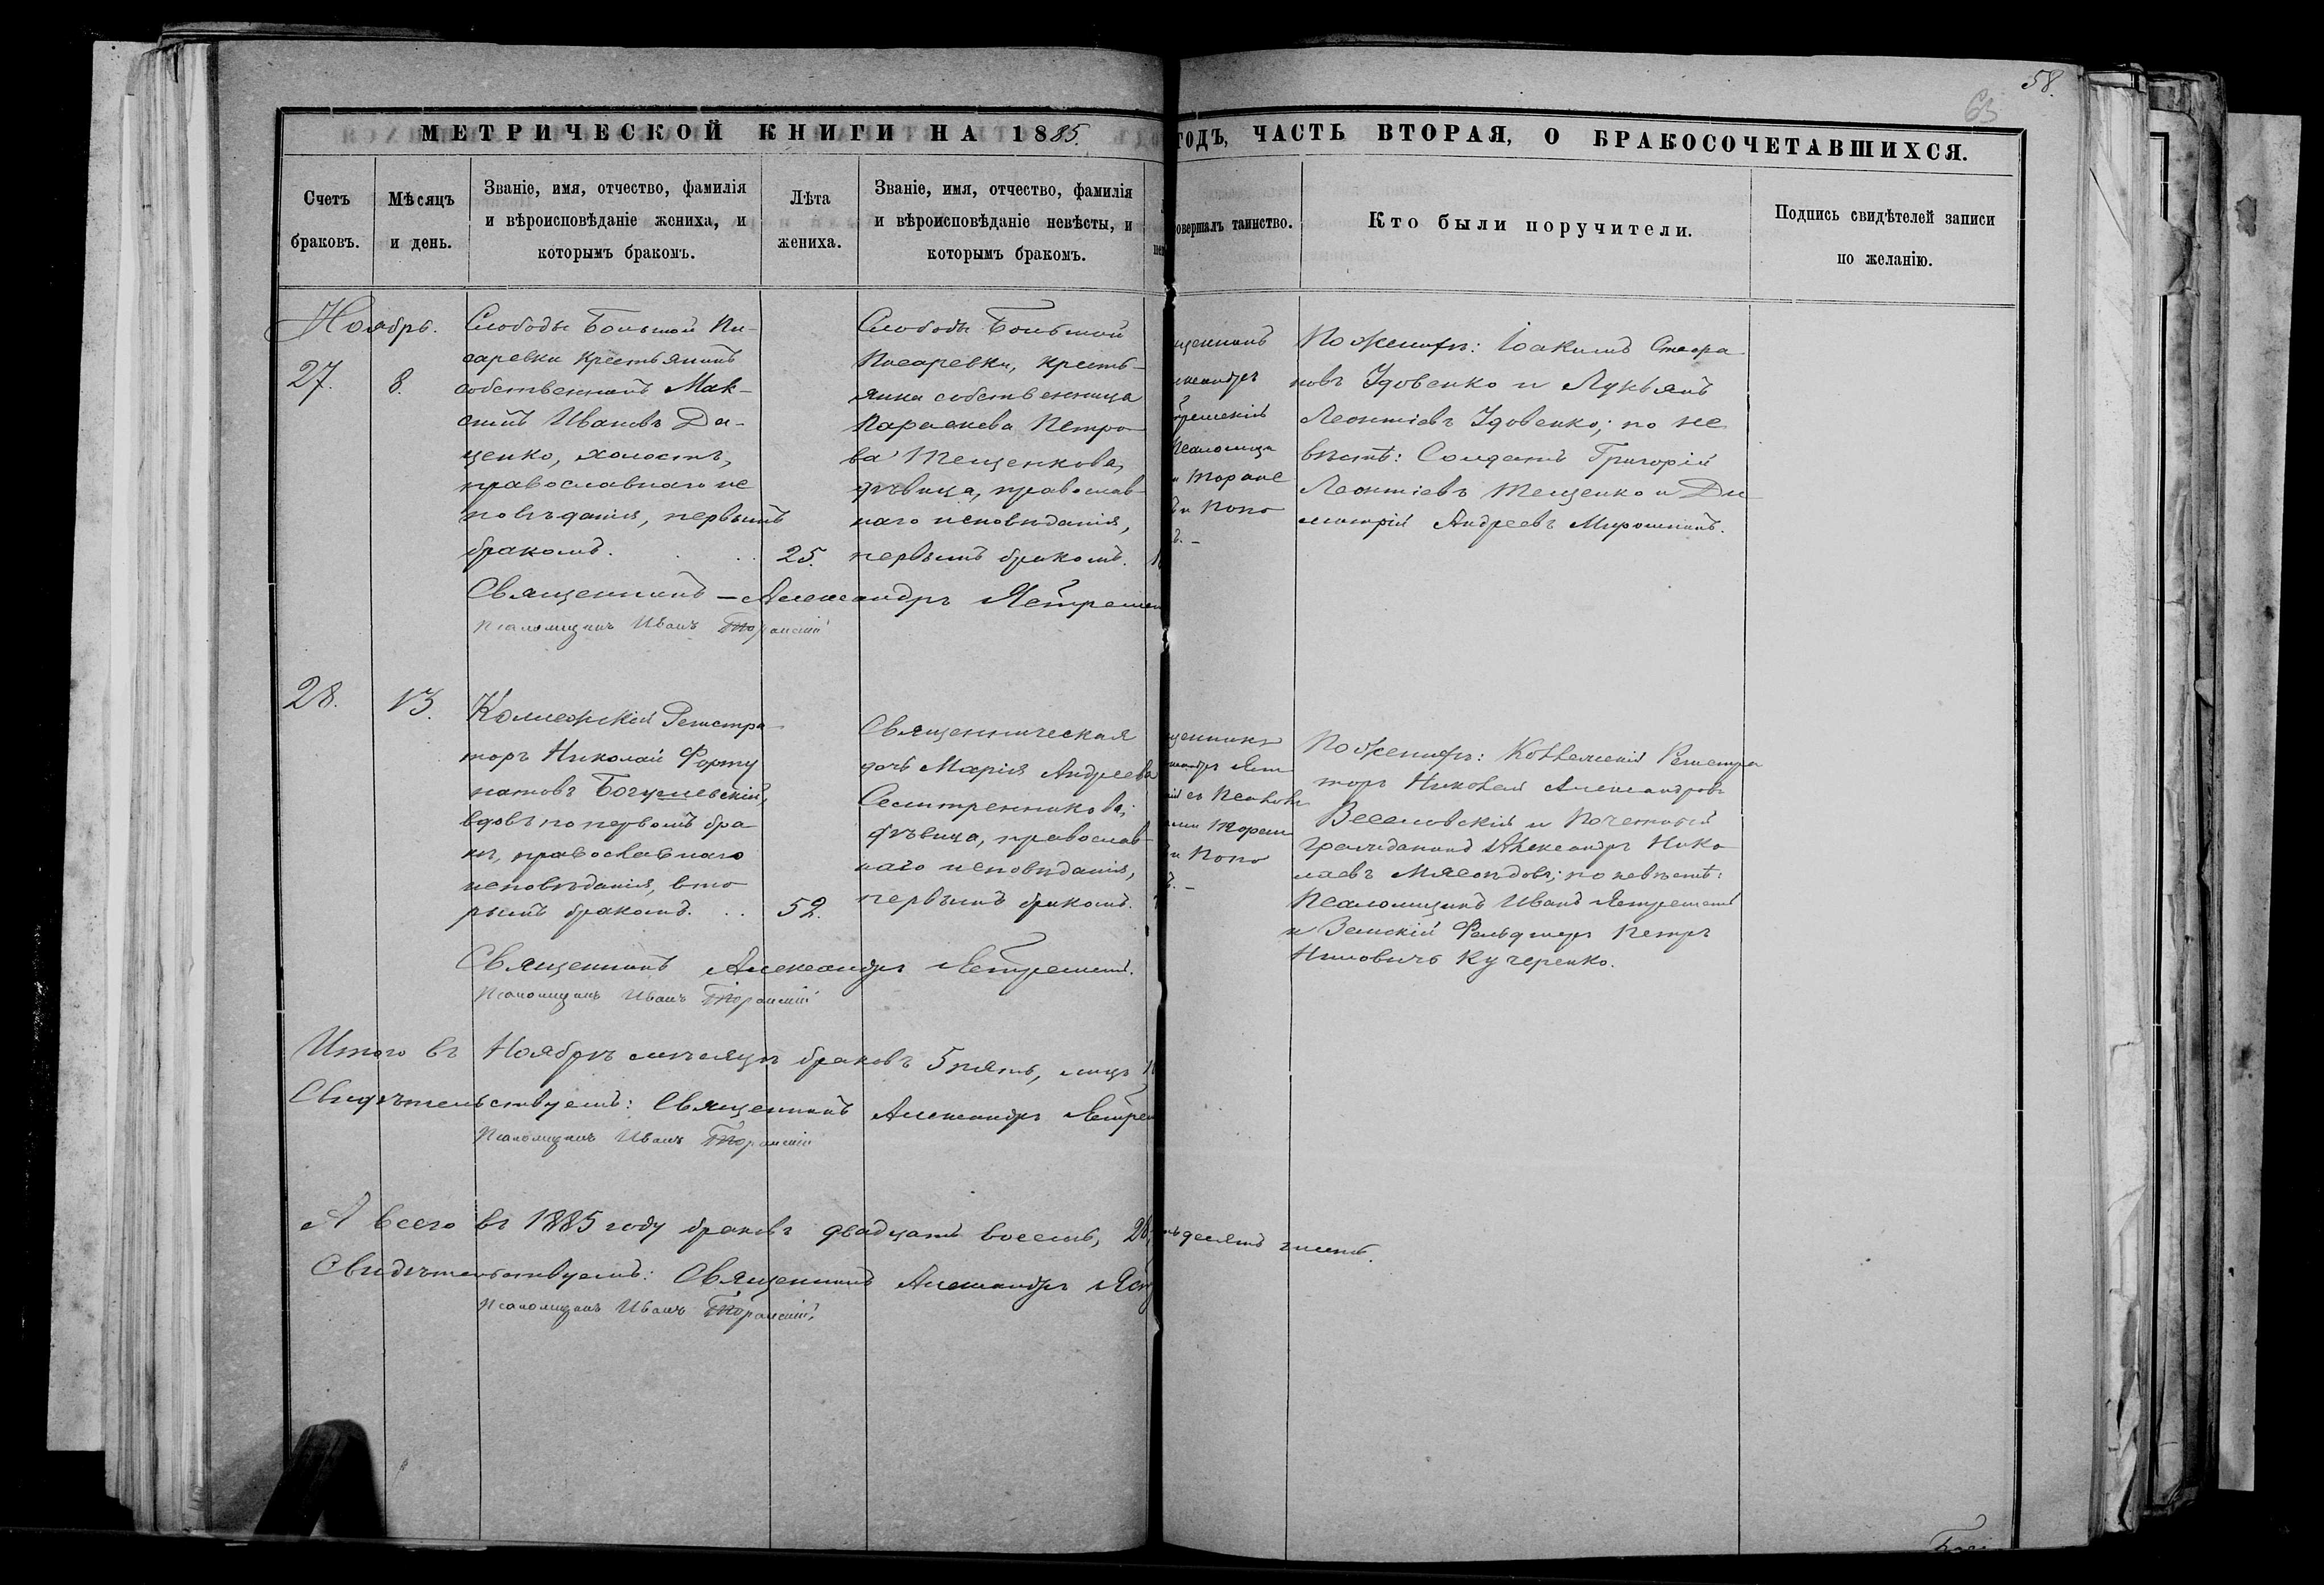 58.
63
МЕТРИЧЕСКОЙ КНИГИ НА 1885.
ГОДЪ, ЧАСТЬ ВТОРАЯ, О БРАКОСОЧЕТАВШИХСЯ.
Счетъ браковъ.
Мѣсяцъ и день.
Званіе, имя, отчество, фамилія
и вѣроисповѣданіе жениха, и
которымъ бракомъ.
Лѣта
жениха.
Званіе, имя, отчество, фамилія
и вѣроисповѣданіе невѣсты, и
которымъ бракомъ.
совершалъ таинство.
Кто были поручители.
Подпись свидѣтелей записи
по желанію.
Ноябрь.
27.
8.
Слободы Большой Пи-
саревки крестьянинъ
собственникъ Мак-
симъ Ивановъ
ценко, холостъ,
православнаго ис
повѣданія, первымъ
бракомъ.
25.
Слободы Большой
Писаревки, кресть-
янка собственница
Параскева Петро-
ва Тещенкова,
дѣвица, православ-
наго исповѣданія,
первымъ бракомъ.
По женихѣ: Іоакимъ
новъ Удовенко и Лукьянъ
Леонтіевъ Удовенко; по не
вѣстѣ: Солдатъ Григорій
Леонтіевъ Тещенко и Ди
митрій Андреевъ Мирошникъ.
Священникъ – Александръ
Псаломщикъ Иванъ
28.
13.
Коллежскій Регистра
торъ Николай Форту
натовъ Богушевскій,
вдовъ по первомъ бра
кѣ, православнаго
исповѣданія, вто
рымъ бракомъ.
52.
Священническая
дочь Марія Андреева
Селитренникова;
дѣвица, православ
наго исповѣданія,
первымъ бракомъ.
По женихѣ: Коллежскій Регистра
торъ Николай Александровъ
Веселовскій и Почетный
гражданинъ Александръ Нико
лаевъ Мясоѣдовъ; по невѣстѣ:
Псаломщикъ Иванъ
и Земскій Фельдшеръ Петръ
Кучеренко.
Священникъ Александръ
Псаломщикъ Иванъ
Итого въ Ноябрѣ мѣсяцѣ браковъ 5 пять, лицъ
Свидѣтельствуемъ: Священникъ Александръ
Псаломщикъ Иванъ
А всего въ 1885 году браковъ двадцать восемь, 28,
Свидѣтельствуемъ: Священникъ Александръ
Псаломщикъ Иванъ